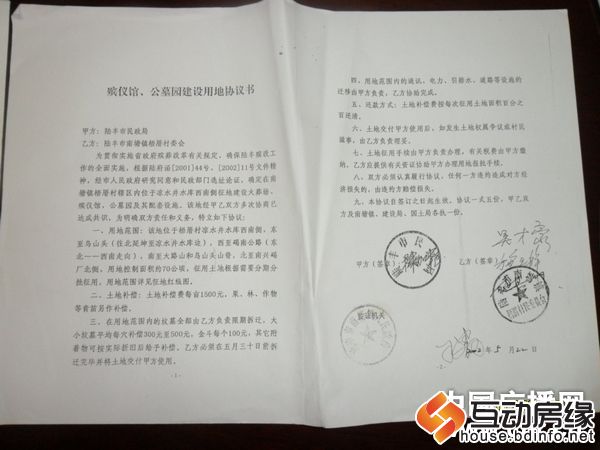 殡仪馆、公墓园建设用地协议书
甲方：陆丰市民政局
乙方：陆丰市南塘镇梧厝村委会
为贯彻实施省政府殡葬改革有关规定，确保陆丰殡改工作
的全面实施，根据陆府函[2001]44号、[2002]11号文件精
神，经市人民政府研究同意和民政部门选址论证，确定在南
塘镇梧厝村辖区内位于凉水井水库西南侧征地建设火葬场、
殡仪馆、公墓园及其配套设施。该地经甲乙双方多次协商已
达成共识，为明确双方责任和义务，特立如下协议：
一、用地范围：该地位于梧厝村凉水井水库西南侧，东
至乌山头（往北延坤至凉水井水库边），西至碣南公路（东
北--一西南走向）、南至大路山和乌山头山脊，北至南兴碣
厂北侧，用地控制面积约70公顷，征用土地根据需要分期分
批征用，用地范围详见征地红线图。
二、土地补偿：土地补偿费每亩1500元，果、林、作物
等青苗另作补偿。
三、在用地范围内的坟墓全部由乙方负责限期拆迁，大
小坟墓平均每穴补偿300元至500元，金斗每个100元，其它附
着物可按实际折旧后给予补偿。乙方必须在五月三十日前拆
迁完毕并将土地交付甲方使用。
-1-
四、用地范围内的通讯，电力、引排水、道路等设施的
迁移由甲方负责，乙方协助完成。
五、还款方式：土地补偿费按每次征用土地面积百分之
百还清。
六、土地交付甲方使用后，如发生土地权属争议或村民
滋事，由乙方负责理妥。
七、土地征用手续由甲方负责办理，有关税费由甲方缴
纳。乙方应提供有关资证协助甲方办理用地报批手续。
八、双方必须认真履行协议，任何一方违约造成对方经
济损失的，由违约方赔偿损失。
九、本协议自签订之日起生效，协议一式五份，甲乙双
方及南塘镇、建设局、国土局各执一份。
甲方（签章）：
乙方（签章）：
鉴证机关
年5月22日
-2-
中国广播网
互动房缘
house.bdinfo.net